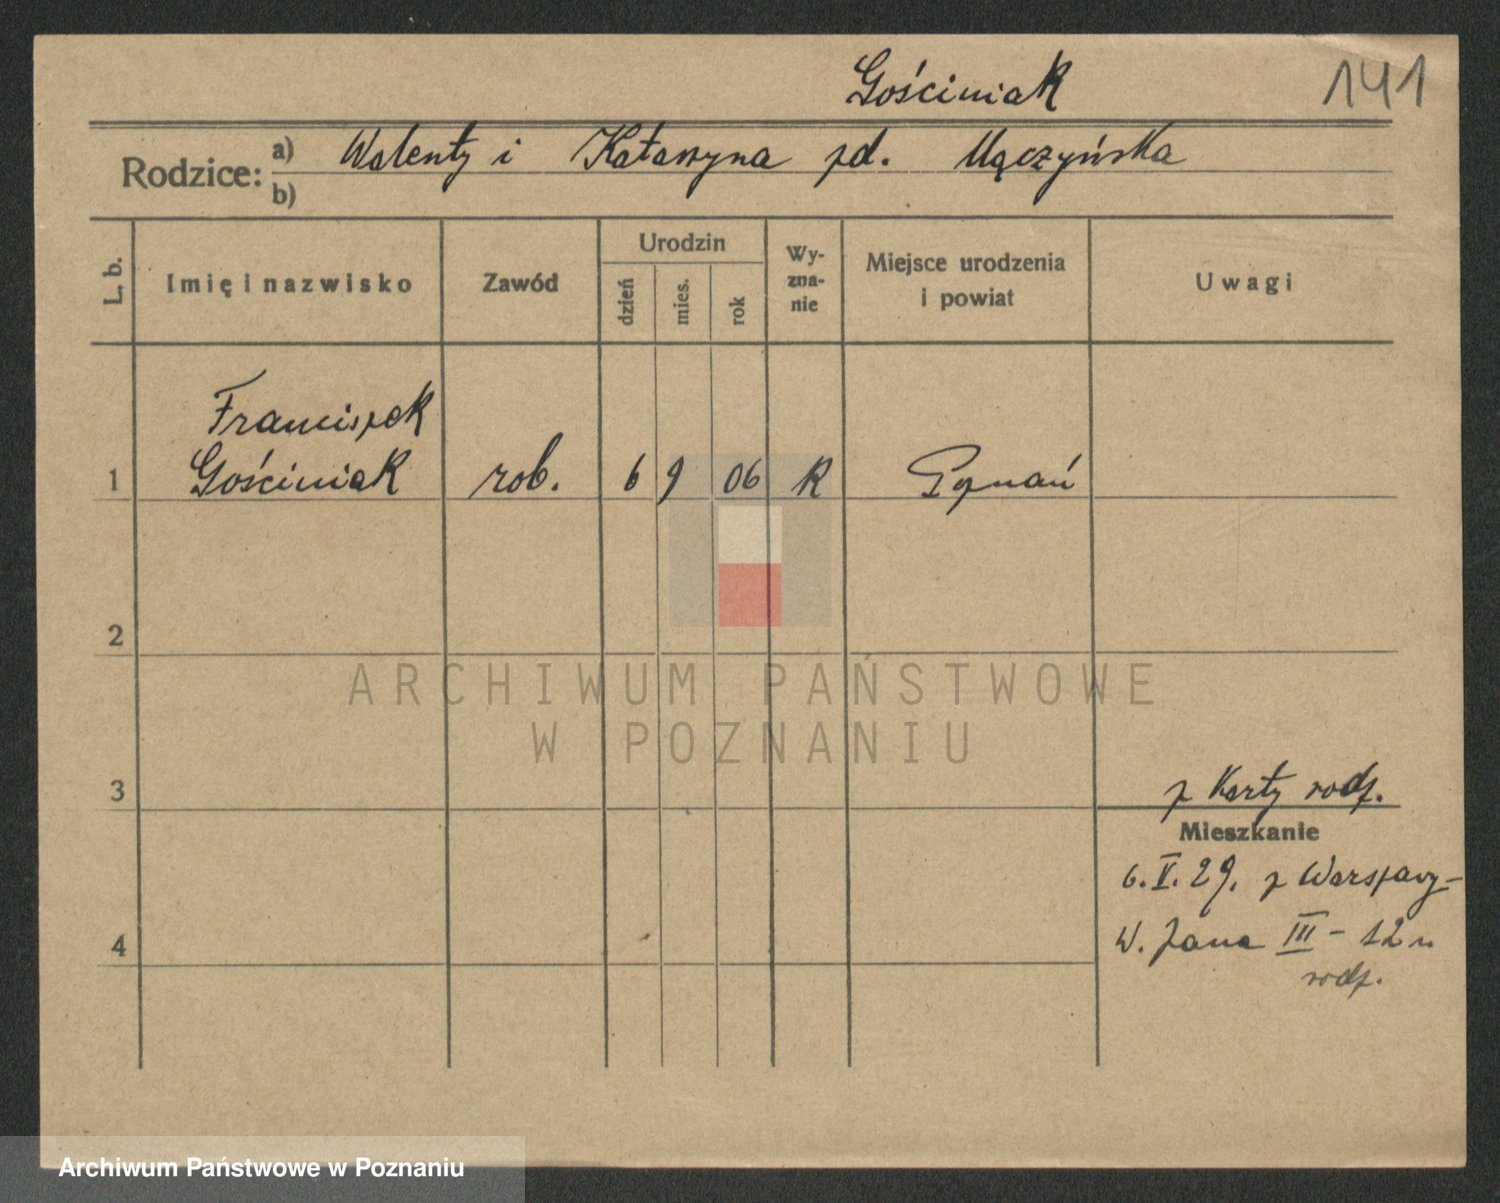 Gościniak
141
Rodzice: a) Walenty i Katarzyna zd. Mączyńska
b)
L. b. Imię i nazwisko Zawód Urodzin dzień mies. rok Wy-zna-nie Miejsce urodzenia i powiat Uwagi
Franciszek
1 Gościniak rob. 6 9 06 R Poznań
2
ARCHIWUM PAŃSTWOWE
W POZNANIU
3
z Karty rodz.
Mieszkanie
6. V. 29. z Warszawy-
4 W. Jana III - 12 u
rodz.
Archiwum Państwowe w Poznaniu